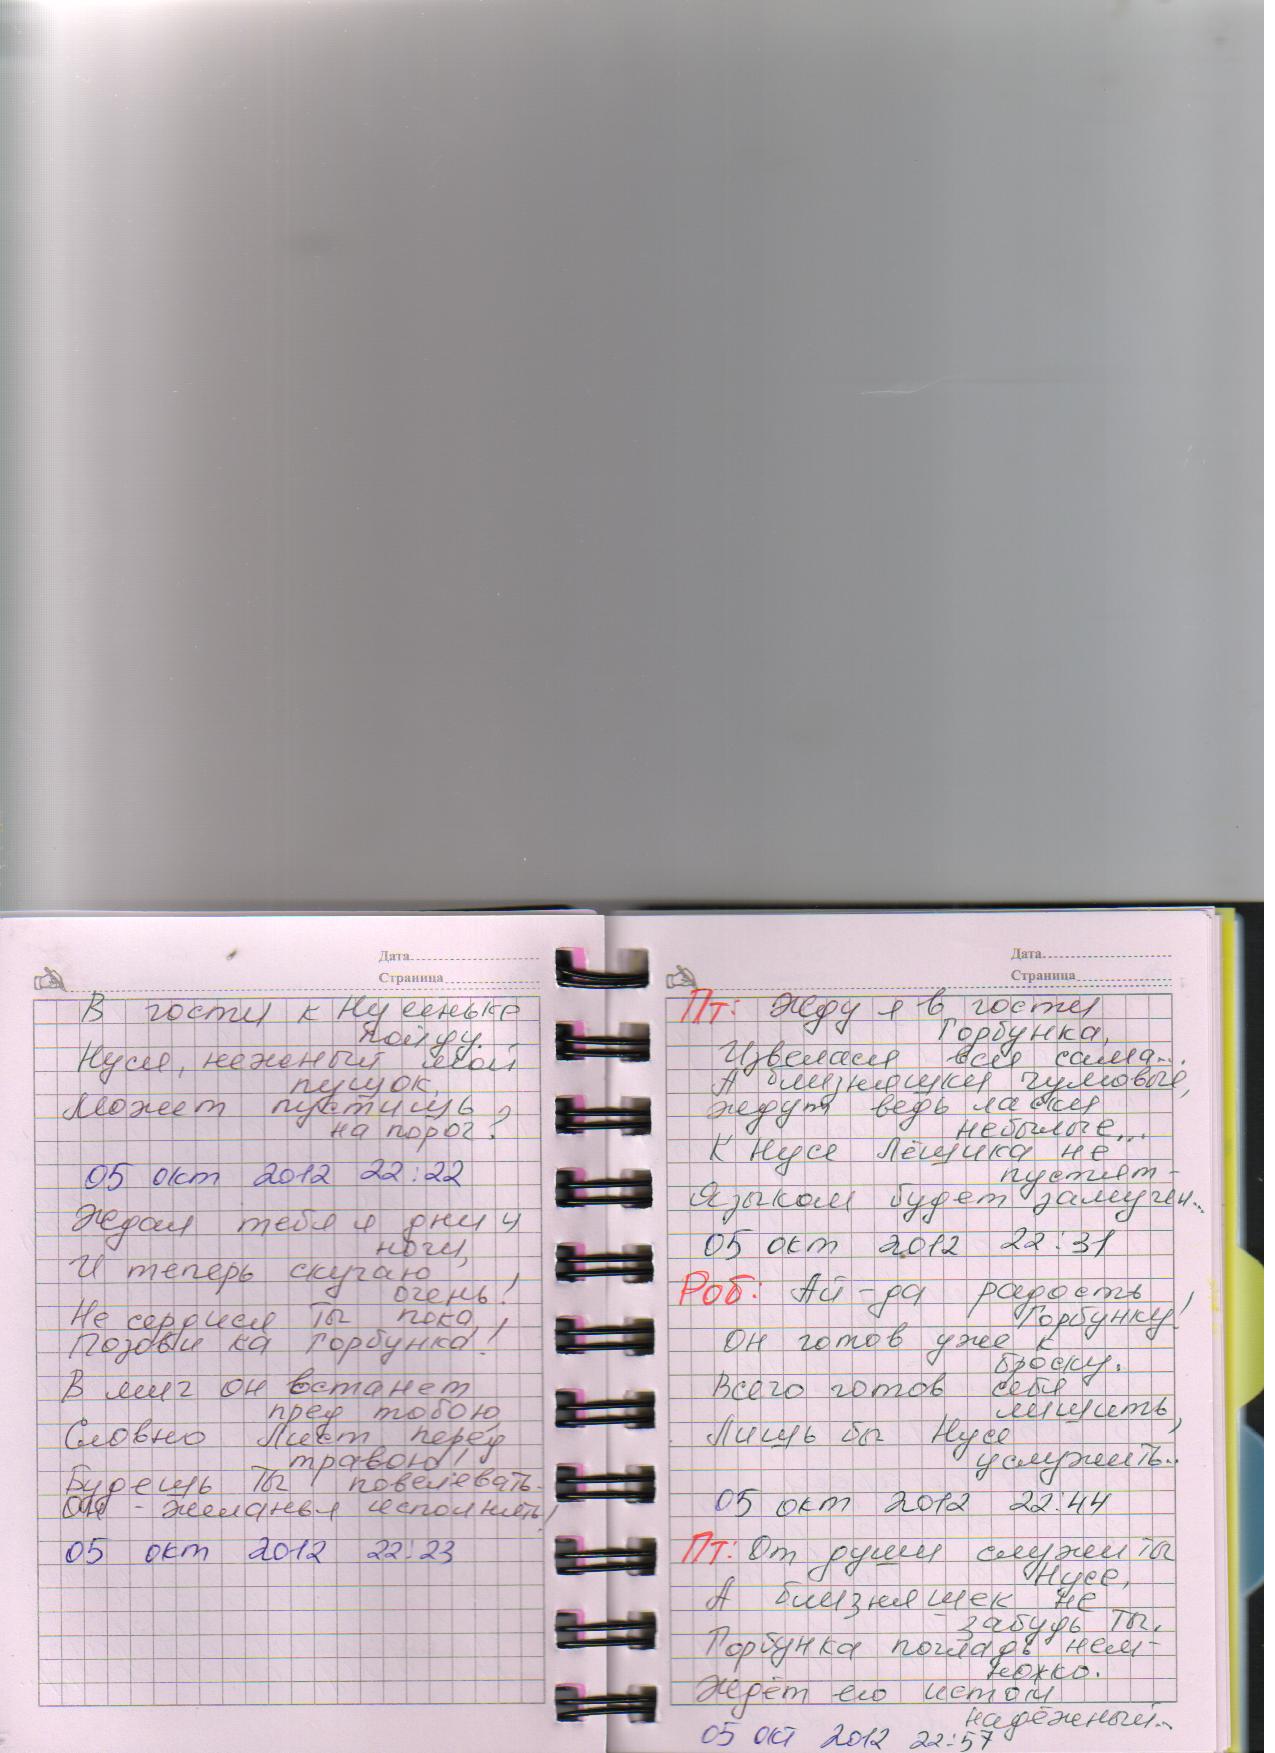 Дата
Страница
В гости к Нусеньке
пойду.
Нуся, нежный мой
пушок,
Может пустишь
на порог?
05 окт 2012 22:22
Ждал тебя я дни и
ночи,
И теперь скучаю
очень!
Не сердися ты пока,
Позови ка Горбунка!
В миг он встанет
пред тобою,
Словно Лист перед
травою!
Будешь ты повелевать.
Он - желанья исполнять!
05 окт 2012 22:23
Дата
Страница
Пт: Жду я в гости
Горбунка,
Извелася вся сама...
А близняшки чумовые,
Ждут ведь ласки
небылые...
К Нусе Лёщика не
пустят -
Языком будет замучен...
05 окт 2012 22:31
Роб: Ай-да радость
Горбунку!
Он готов уже к
броску.
Всего готов себя
лишить,
Лишь бы Нусе
услужить..
05 окт 2012 22:44
Пт: От души служи ты
Нусе,
А близняшек не
забудь ты.
Горбунка погладь нем-
ножко.
Ждёт его
надёжный...
05 окт 2012 22:57